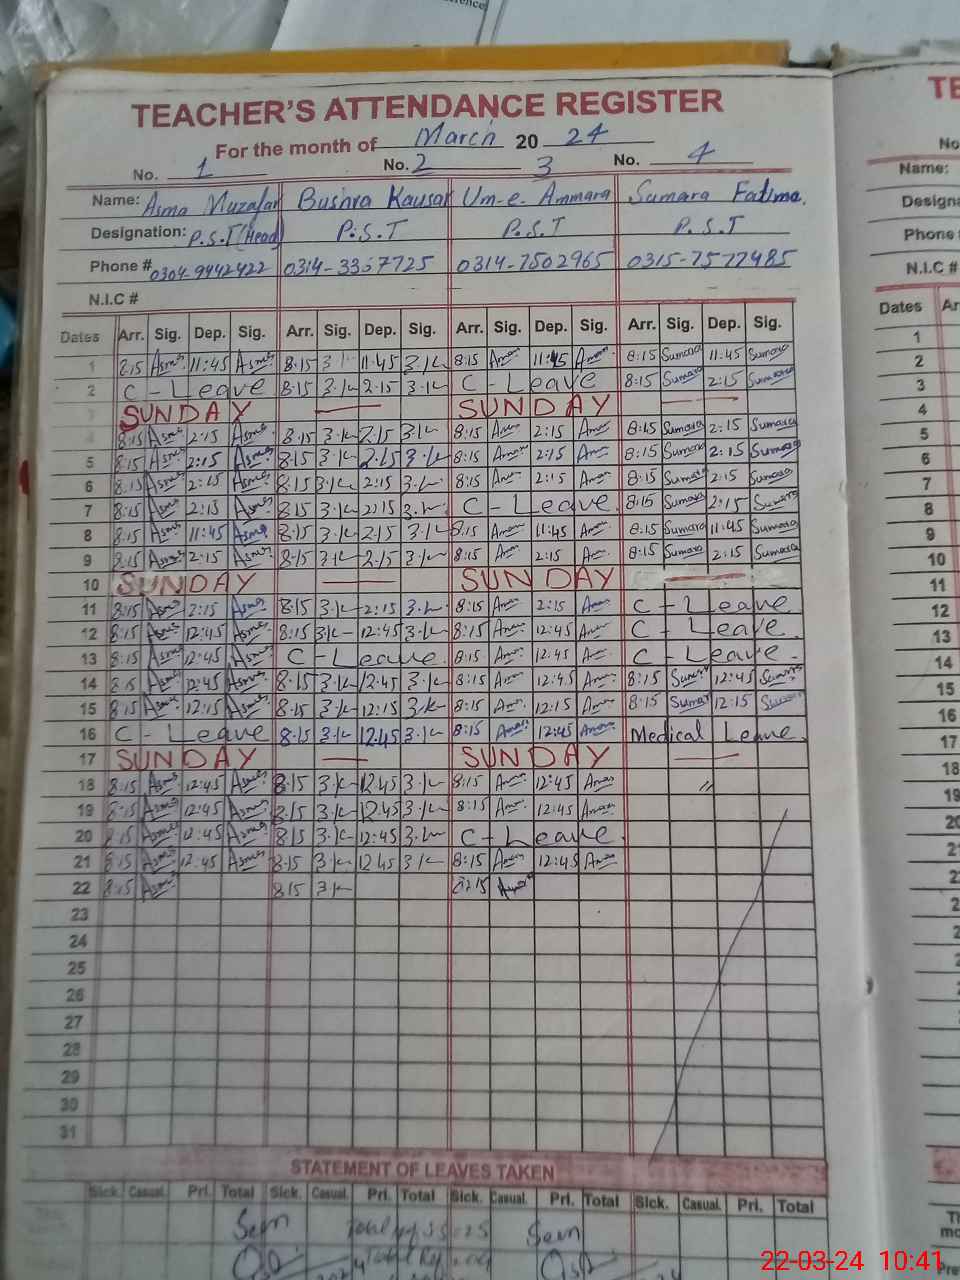 TEACHER'S ATTENDANCE REGISTER
For the month of March 20 24
No. 1 No. 2 3 No. 4
Name: Asma Muzafar Bushra Kausar Um-e-Ammara Sumara Fatima.
Designation: P.S.T (Head) P.S.T P.S.T P.S.T
Phone # 0304-9442422 0314-3367725 0314-7502965 0315-7577485
N.I.C #
Dates Arr. Sig. Dep. Sig. Arr. Sig. Dep. Sig. Arr. Sig. Dep. Sig. Arr. Sig. Dep. Sig.
1 8:15 Asma 11:45 Asma 8:15 3.K 11:45 3.K 8:15 Amm 11:45 Amm 8:15 Sumara 11:45 Sumara
2 C - Leave 8:15 3.K 2:15 3.K C - Leave 8:15 Sumara 2:15 Sumara
3 SUNDAY — SUNDAY — —
4 8:15 Asma 2:15 Asma 8:15 3.K 2:15 3.K 8:15 Amm 2:15 Amm 8:15 Sumara 2:15 Sumara
5 8:15 Asma 2:15 Asma 8:15 3.K 2:15 3.K 8:15 Amm 2:15 Amm 8:15 Sumara 2:15 Sumara
6 8:15 Asma 2:15 Asma 8:15 3.K 2:15 3.K 8:15 Amm 2:15 Amm 8:15 Sumara 2:15 Sumara
7 8:15 Asma 2:15 Asma 8:15 3.K 2:15 3.K C - Leave 8:15 Sumara 2:15 Sumara
8 8:15 Asma 11:45 Asma 8:15 3.K 2:15 3.K 8:15 Amm 11:45 Amm 8:15 Sumara 11:45 Sumara
9 8:15 Asma 2:15 Asma 8:15 3.K 2:15 3.K 8:15 Amm 2:15 Amm 8:15 Sumara 2:15 Sumara
10 SUNDAY — SUNDAY —
11 8:15 Asma 2:15 Asma 8:15 3.K 2:15 3.K 8:15 Amm 2:15 Amm C - Leave
12 8:15 Asma 12:45 Asma 8:15 3.K 12:45 3.K 8:15 Amm 12:45 Amm C - Leave.
13 8:15 Asma 12:45 Asma C - Leave. 8:15 Amm 12:45 Amm C - Leave.
14 8:15 Asma 12:45 Asma 8:15 3.K 12:45 3.K 8:15 Amm 12:45 Amm 8:15 Sumara 12:45 Sumara
15 8:15 Asma 12:15 Asma 8:15 3.K 12:15 3.K 8:15 Amm 12:15 Amm 8:15 Sumara 12:15 Sumara
16 C - Leave 8:15 3.K 12:45 3.K 8:15 Amm 12:45 Amm Medical Leave.
17 SUNDAY — SUNDAY — —
18 8:15 Asma 12:45 Asma 8:15 3.K 12:45 3.K 8:15 Amm 12:45 Amm //
19 8:15 Asma 12:45 Asma 8:15 3.K 12:45 3.K 8:15 Amm 12:45 Amm
20 8:15 Asma 12:45 Asma 8:15 3.K 12:45 3.K C - Leave.
21 8:15 Asma 12:45 Asma 8:15 3.K 12:45 3.K 8:15 Amm 12:45 Amm
22 8:15 Asma 8:15 3.K 8:15 Amm
23
24
25
26
27
28
29
30
31
STATEMENT OF LEAVES TAKEN
Sick. Casual. Pri. Total Sick. Casual. Pri. Total Sick. Casual. Pri. Total Sick. Casual. Pri. Total
Seen Seen
TE
No
Name:
Designa
Phone
N.I.C #
Dates Ar
1
2
3
4
5
6
7
8
9
10
11
12
13
14
15
16
17
18
19
22-03-24 10:41